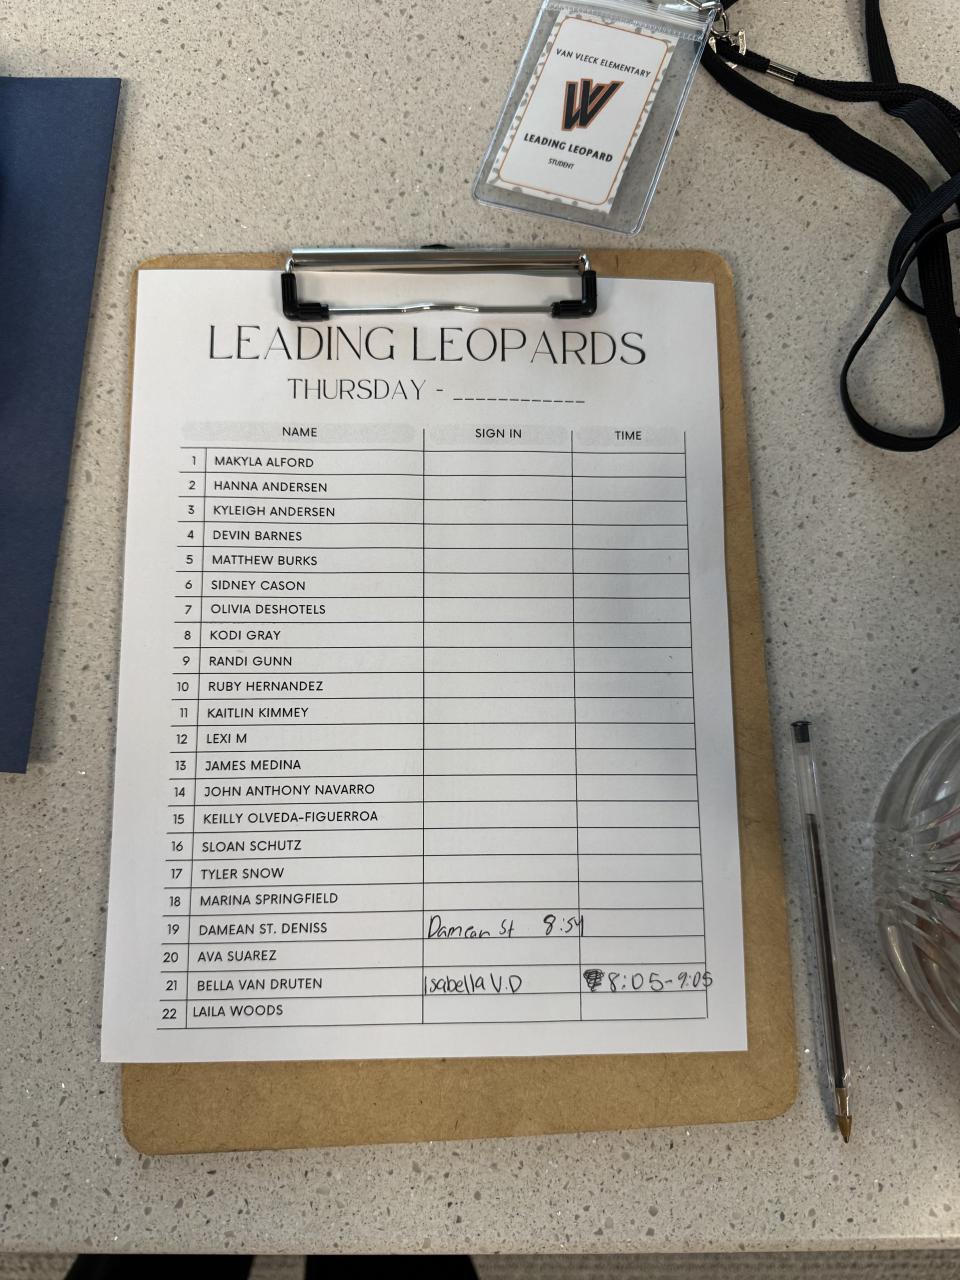 VAN VLECK ELEMENTARY
LEADING LEOPARD
STUDENT
LEADING LEOPARDS
THURSDAY - ____________
NAME SIGN IN TIME
1 MAKYLA ALFORD
2 HANNA ANDERSEN
3 KYLEIGH ANDERSEN
4 DEVIN BARNES
5 MATTHEW BURKS
6 SIDNEY CASON
7 OLIVIA DESHOTELS
8 KODI GRAY
9 RANDI GUNN
10 RUBY HERNANDEZ
11 KAITLIN KIMMEY
12 LEXI M
13 JAMES MEDINA
14 JOHN ANTHONY NAVARRO
15 KEILLY OLVEDA-FIGUERROA
16 SLOAN SCHUTZ
17 TYLER SNOW
18 MARINA SPRINGFIELD
19 DAMEAN ST. DENISS Damean St 8:54
20 AVA SUAREZ
21 BELLA VAN DRUTEN Isabella V.D 8:05-9:05
22 LAILA WOODS